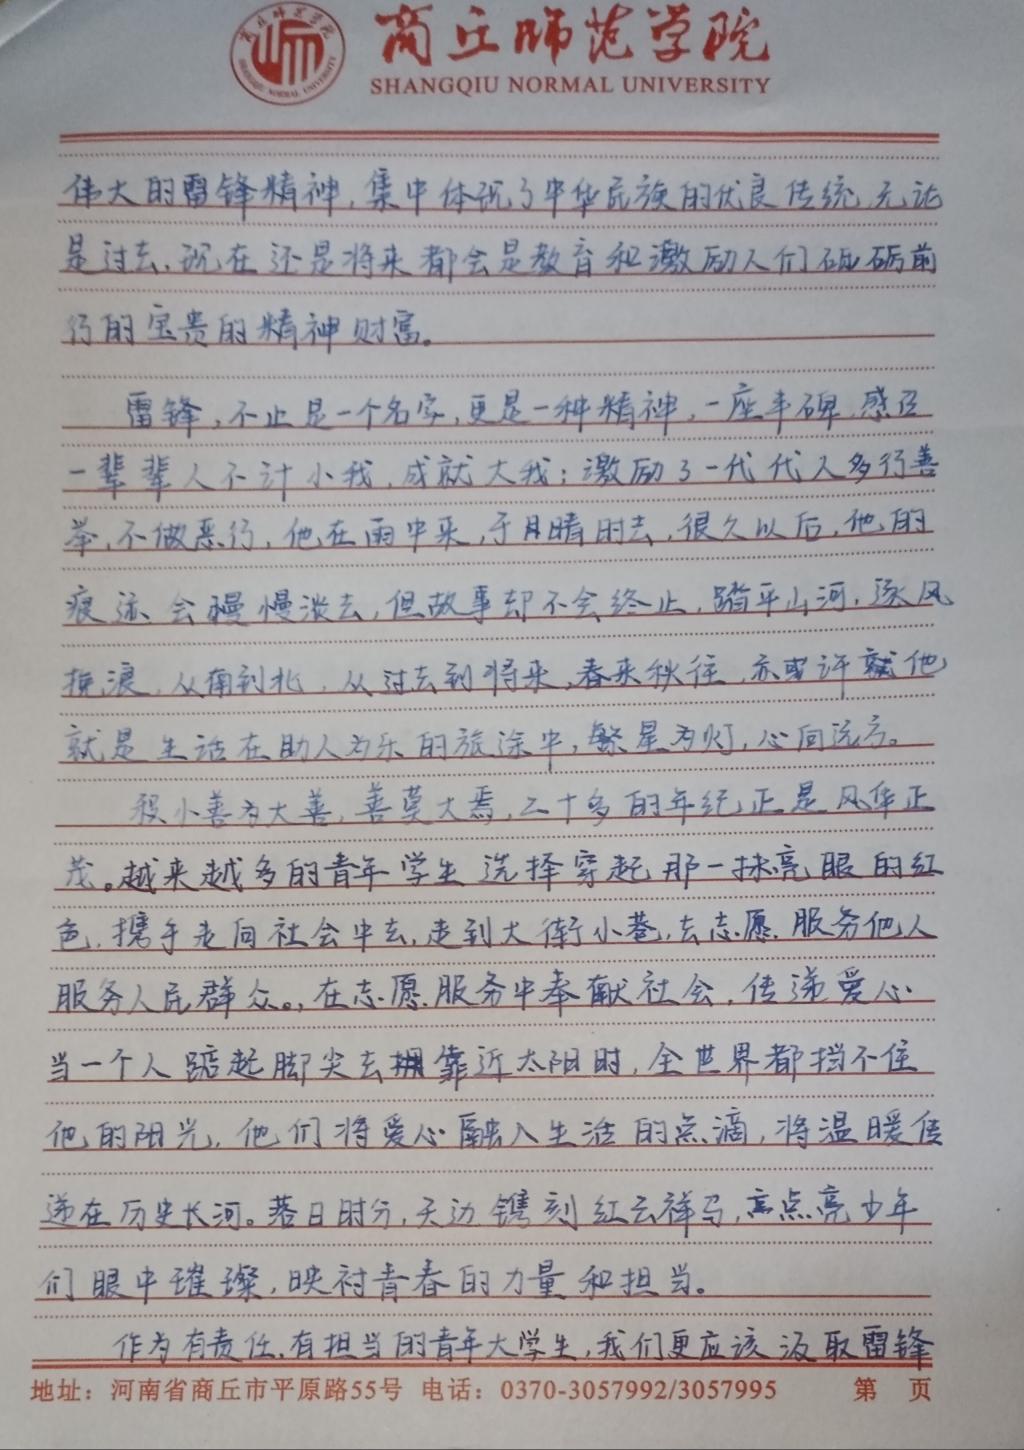 商丘师范学院
SHANGQIU NORMAL UNIVERSITY
伟大的雷锋精神,集中体现了中华民族的优良传统,无论
是过去、现在还是将来都会是教育和激励人们砥砺前
行的宝贵的精神财富。
雷锋,不止是一个名字,更是一种精神,一座丰碑,感召
一辈辈人不计小我,成就大我;激励了一代代人多行善
举,不做恶行,他在雨中来,于月晴时去,很久以后,他的
痕迹会慢慢淡去,但故事却不会终止,踏平山河,逐风
挽浪,从南到北,从过去到将来,春来秋往,亦或许就他
就是生活在助人为乐的旅途中,繁星为灯,心向远方。
积小善为大善,善莫大焉,二十多的年纪正是风华正
茂。越来越多的青年学生选择穿起那一抹亮眼的红
色,携手走向社会中去,走到大街小巷,去志愿服务他人
服务人民群众。,在志愿服务中奉献社会,传递爱心
当一个人踮起脚尖去靠近太阳时,全世界都挡不住
他的阳光,他们将爱心融入生活的点滴,将温暖传
递在历史长河。落日时分,天边镌刻红云祥马,点亮少年
们眼中璀璨,映衬青春的力量和担当。
作为有责任、有担当的青年大学生,我们更应该汲取雷锋
地址:河南省商丘市平原路55号 电话:0370-3057992/3057995 第 页